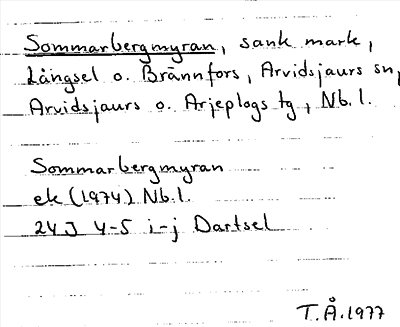 Sommarbergmyran, sank mark,
Långsel o. Brännfors, Arvidsjaurs sn,
Arvidsjaurs o. Arjeplogs tg, Nb.l.
Sommarbergmyran
ek (1974) Nb.l.
24J 4-5 i-j Dartsel
T.Å.1977